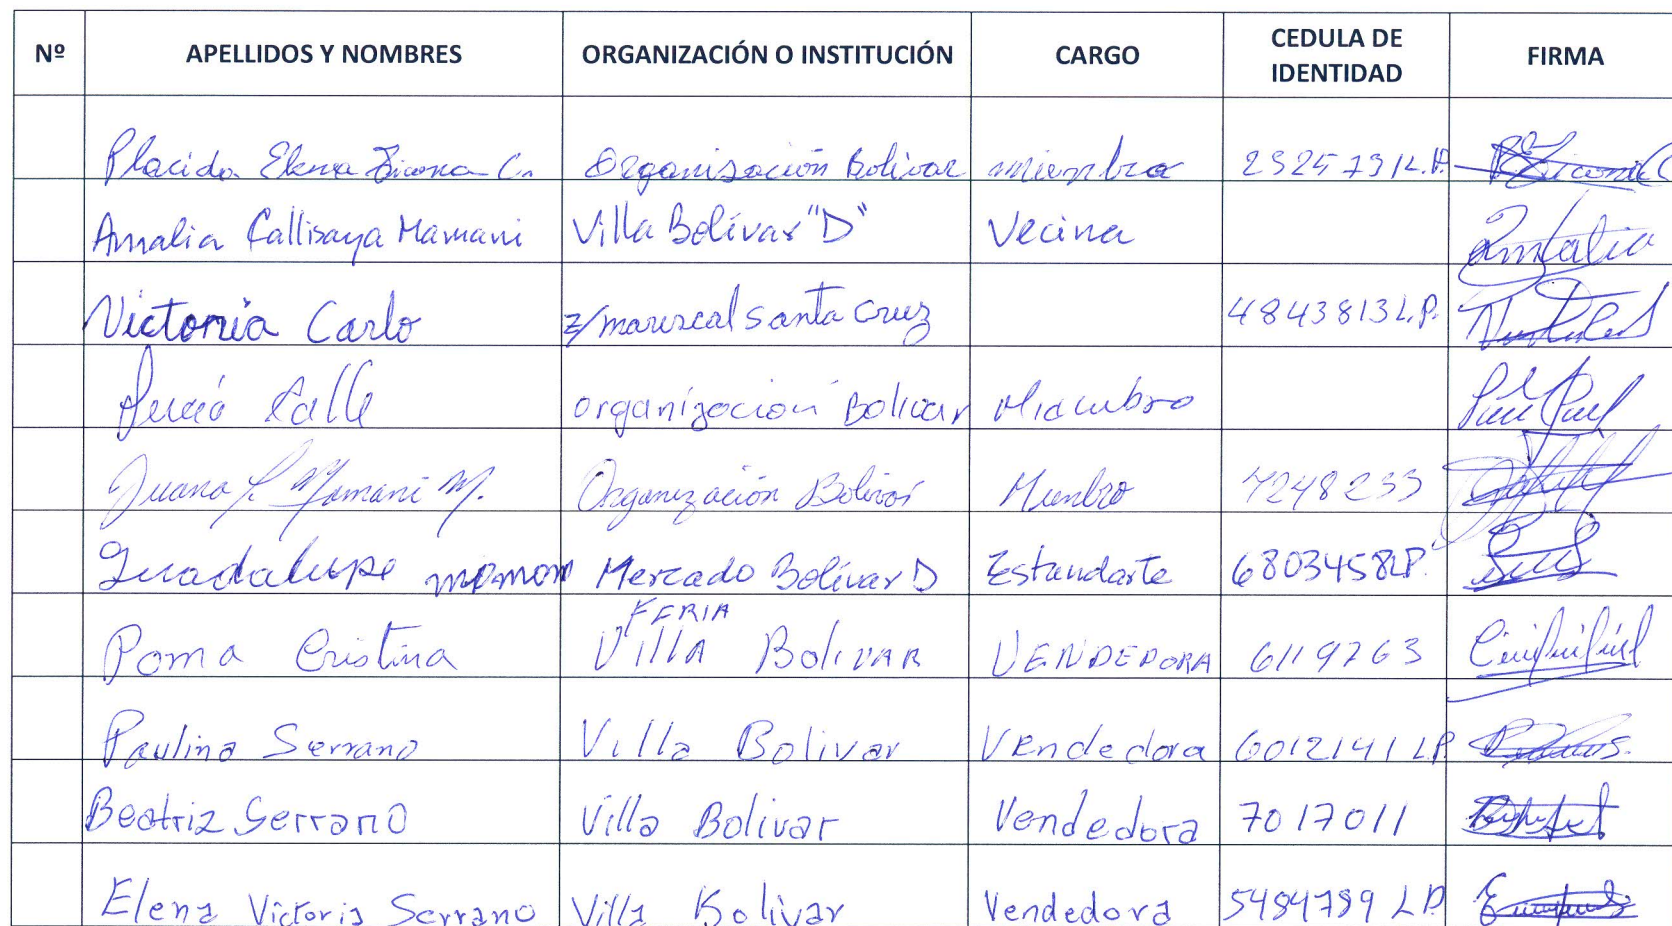 Nº APELLIDOS Y NOMBRES ORGANIZACIÓN O INSTITUCIÓN CARGO CEDULA DE IDENTIDAD FIRMA
Placida Elena Ticona C. Organisación Bolivar miembra 2325731 L.P.
Amalia Callisaya Mamani Villa Bolívar "D" Vecina Amalia
Victoria Carlo z/mariscal santa Cruz 4843813 L.P.
Calle organización Bolivar Miembro
Juana Mamani M. Organización Bolivar Miembro 7248233
Guadalupe mamani Mercado Bolívar D Estandarte 6803458 LP.
Poma Cristina FERIA Villa Bolivar VENDEDORA 6119763
Paulina Serrano Villa Bolivar Vendedora 6012141 LP
Beatriz Serrano Villa Bolivar Vendedora 7017011
Elena Victoria Serrano Villa Bolivar Vendedora 5484789 LP